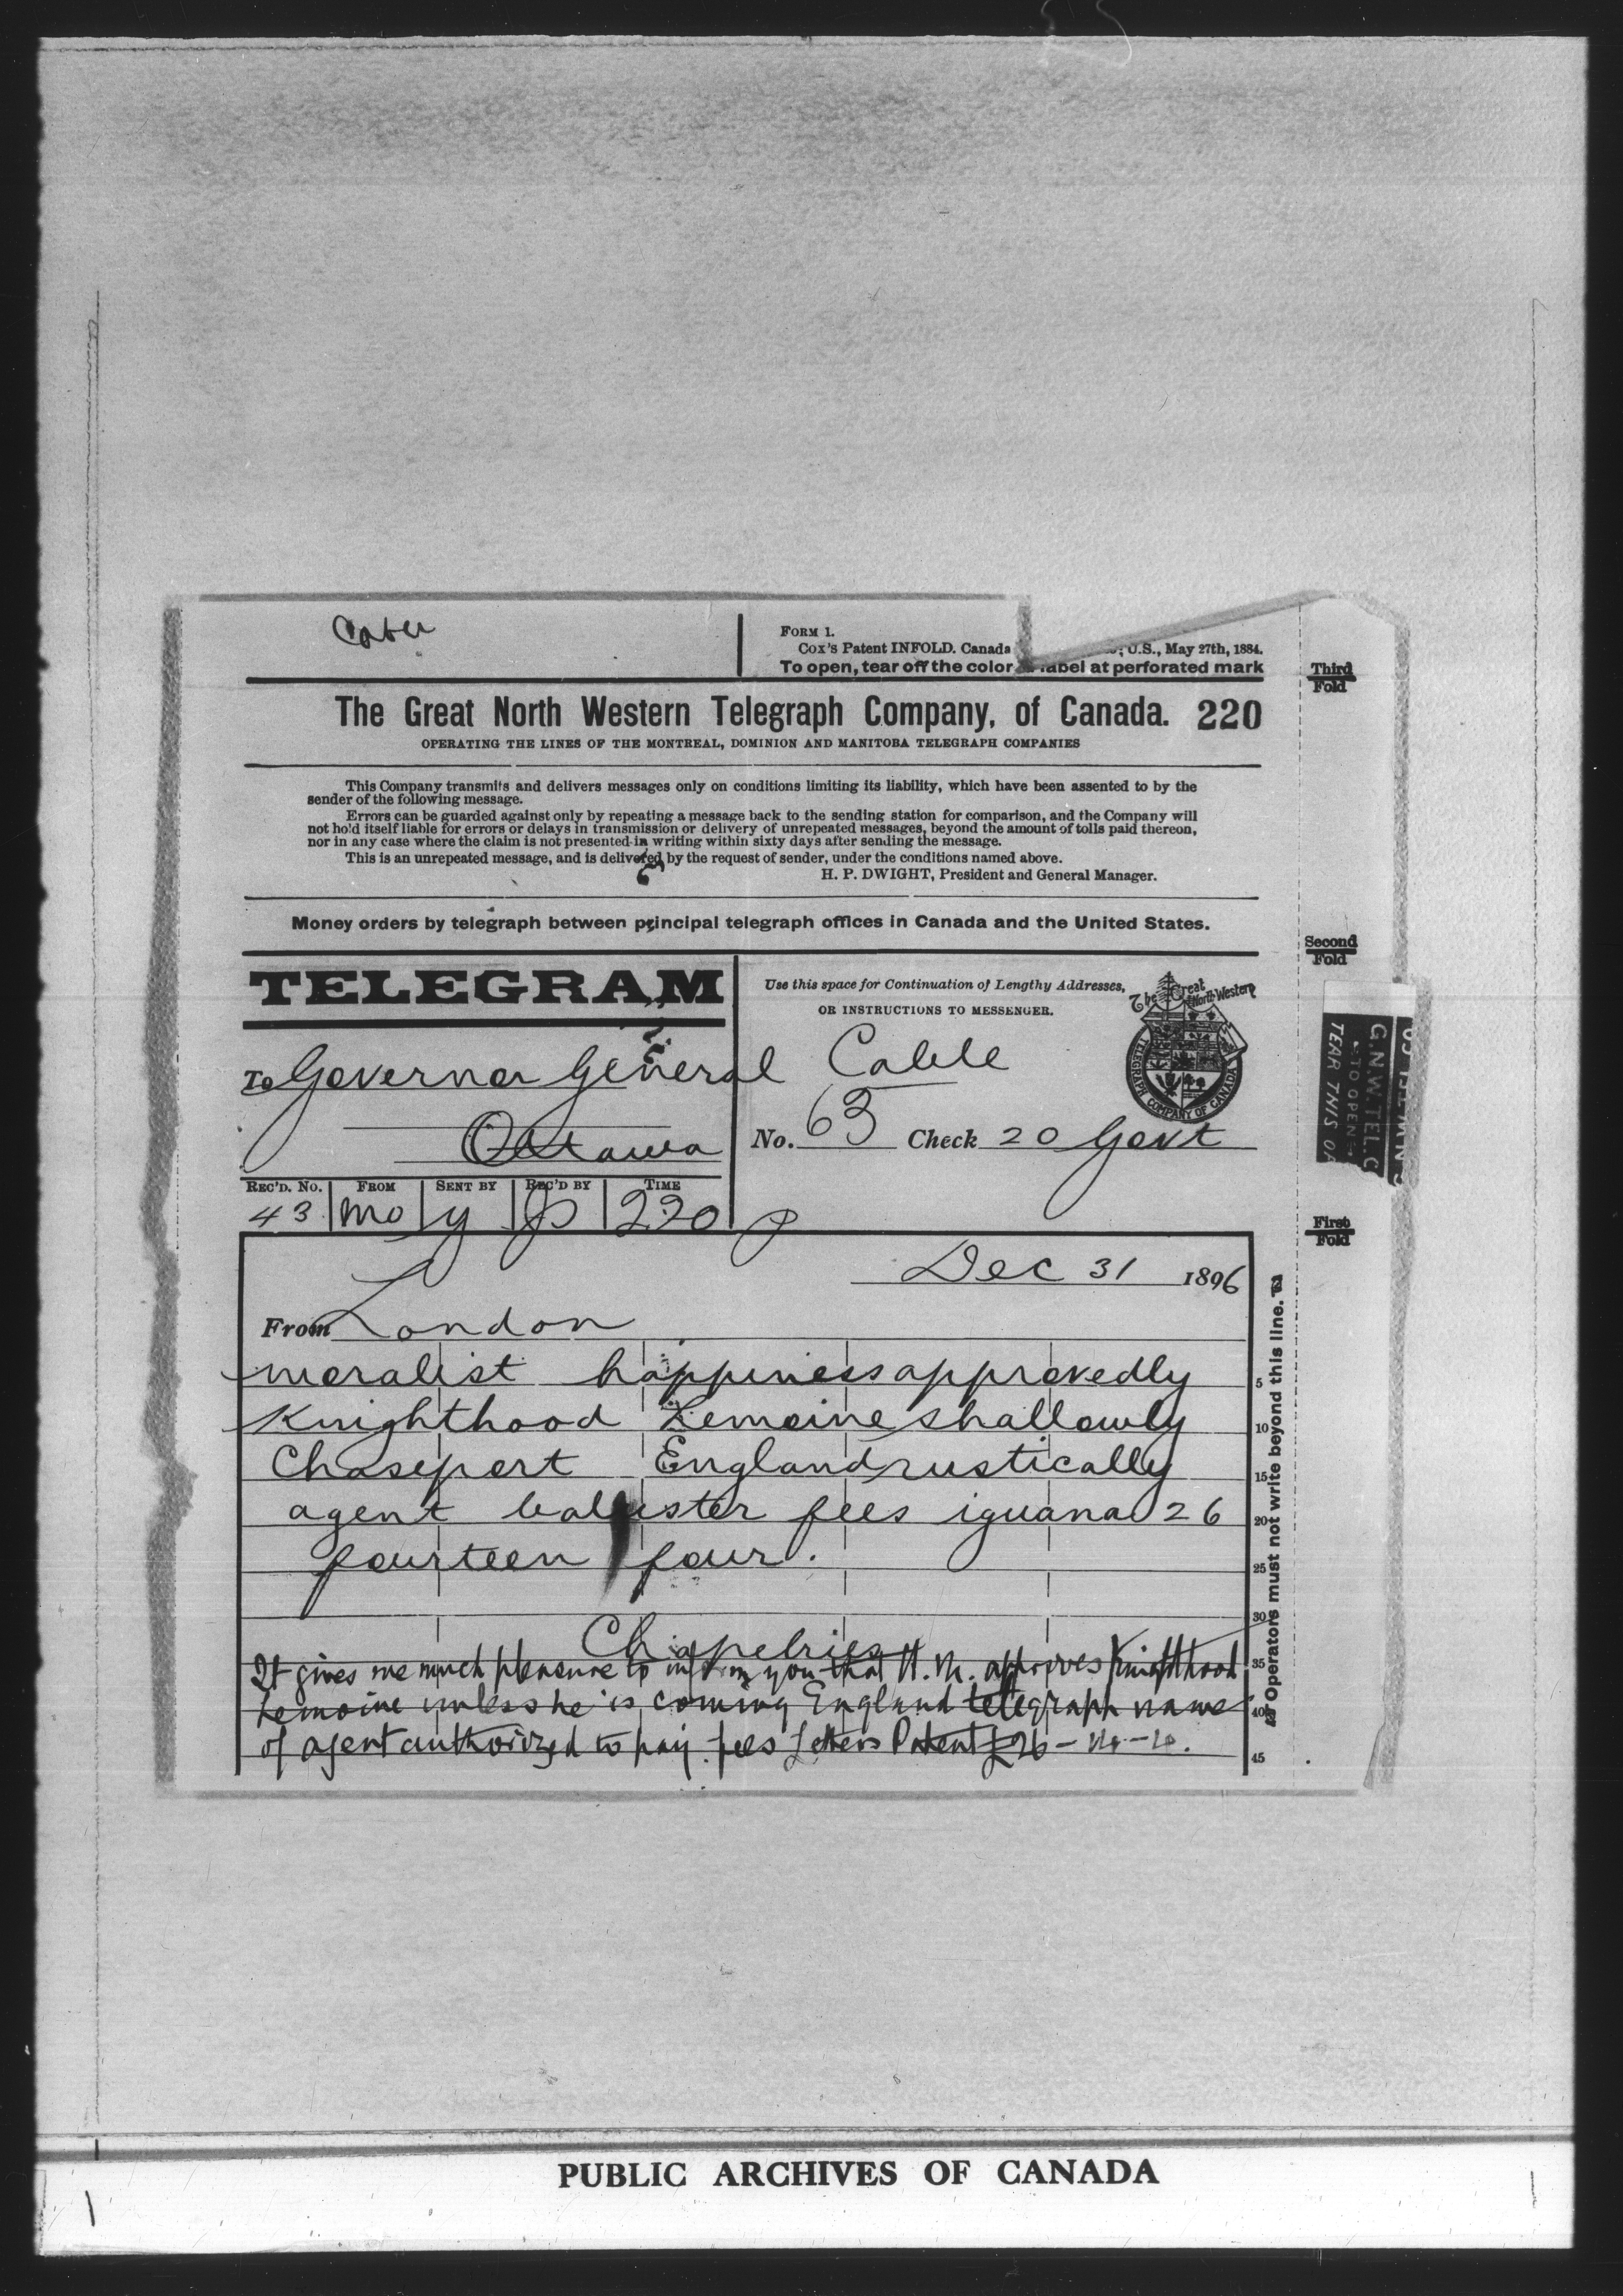 Form 1.
Cox's Patent INFOLD. Canada U.S., May 27th, 1884.
To open, tear off the color label at perforated mark
The Great North Western Telegraph Company, of Canada. 220
OPERATING THE LINES OF THE MONTREAL, DOMINION AND MANITOBA TELEGRAPH COMPANIES
This Company transmits and delivers messages only on conditions limiting its liability, which have been assented to by the
sender of the following message.
Errors can be guarded against only by repeating a message back to the sending station for comparison, and the Company will
not hold itself liable for errors or delays in transmission or delivery of unrepeated messages, beyond the amount of tolls paid thereon,
nor in any case where the claim is not presented in writing within sixty days after sending the message.
This is an unrepeated message, and is delivered by the request of sender, under the conditions named above.
H. P. DWIGHT, President and General Manager.
Money orders by telegraph between principal telegraph offices in Canada and the United States.
TELEGRAM
Use this space for Continuation of Lengthy Addresses,
OR INSTRUCTIONS TO MESSENGER.
The Great North Western
TELEGRAPH COMPANY OF CANADA
To Governor General
Cable
Ottawa
No. 63 Check 20 Govt
REC'D. No. FROM SENT BY REC'D BY TIME
43 Mo y 220 p
Dec 31 1896
From London
moralist happiness approvedly 5
Knighthood Lemoine shallowly 10
Chaseport England rustically 15
agent balluster fees iguana 26 20
fourteen four. 25
30
Chapelries
It gives me much pleasure to inform you that H. M. approves Knighthood 35
Lemoine unless he is coming England telegraph name 40
of agent authorized to pay fees Letters Patent £26-14-4. 45
Operators must not write beyond this line.
Third
Fold
Second
Fold
First
Fold
G.N.W.TEL.C
TO OPEN
TEAR THIS
PUBLIC ARCHIVES OF CANADA